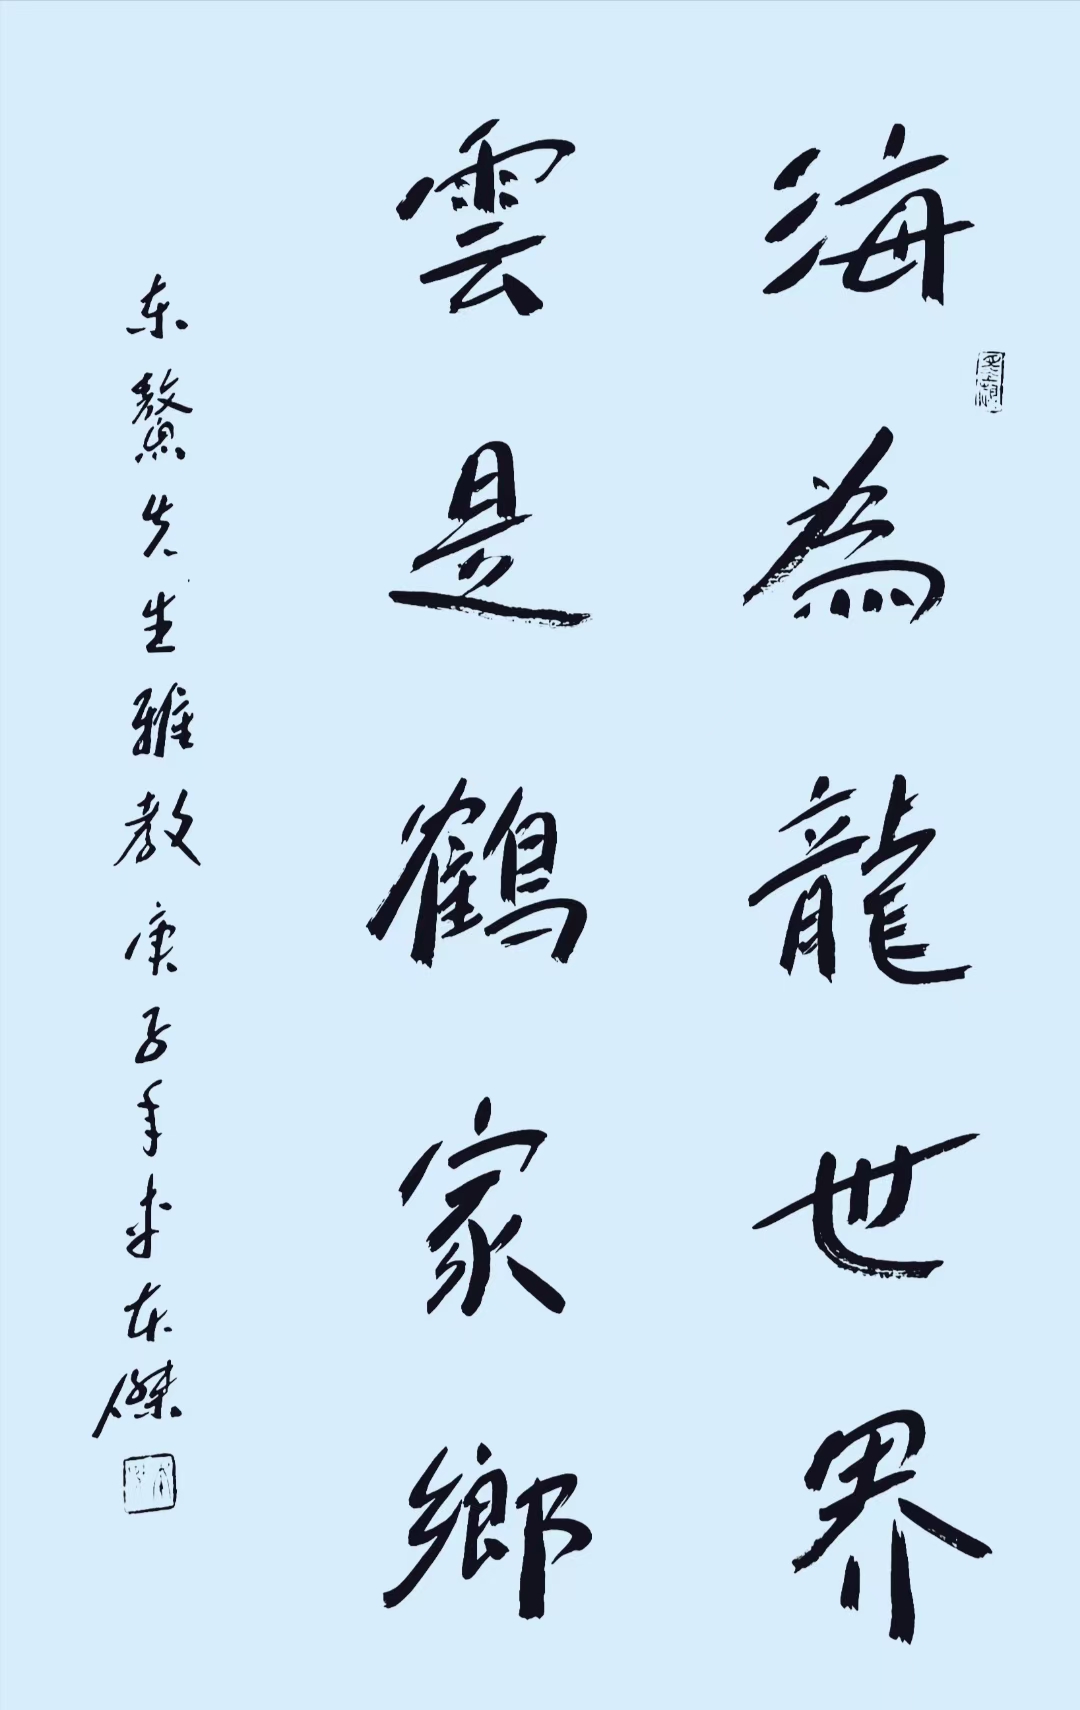 海為龍世界
雲是鶴家鄉
东鰲先生雅教庚子年 东傑